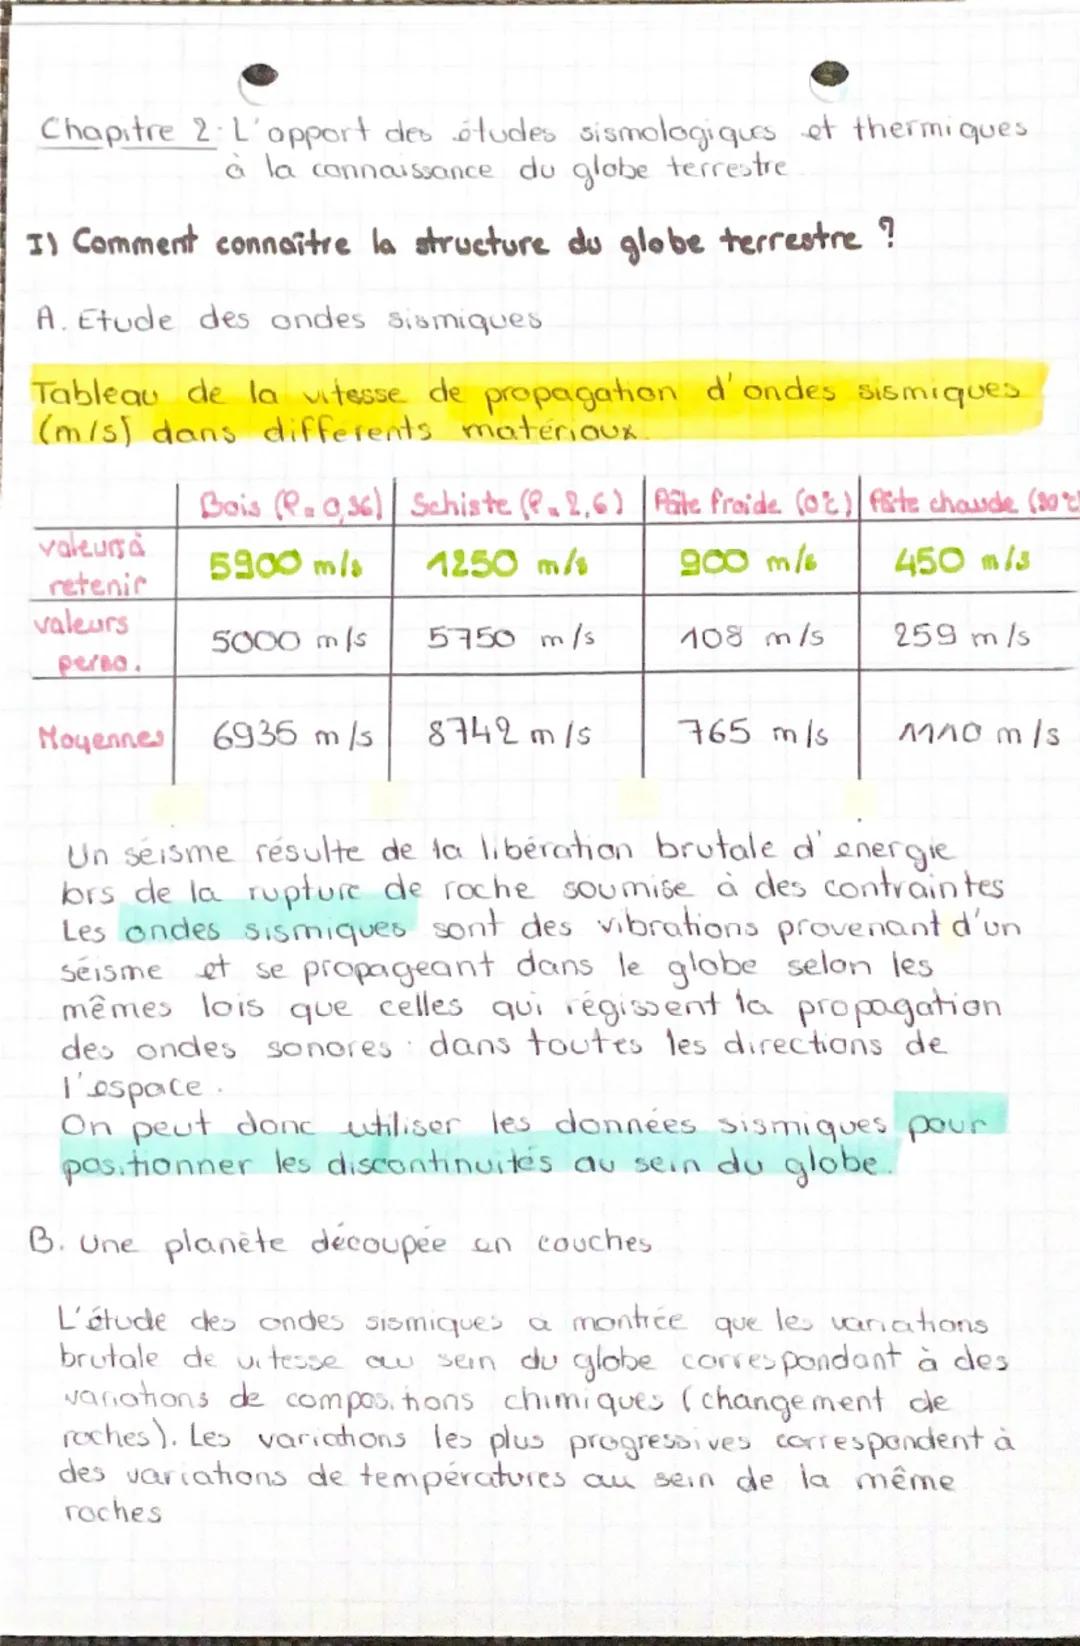 Chapitre 2: L'apport des études sismologiques et thermiques
à la connaissance du globe terrestre
I) Comment connaître la structure du globe terrestre ?
A. Etude des ondes sismiques
Tableau de la vitesse de propagation d'ondes sismiques
(m/s) dans différents matériaux.
Bois (ρ=0,36) Schiste (ρ=2,6) Pâte froide (0°C) Pâte chaude (30°C)
valeurs à retenir 5900 m/s 1250 m/s 900 m/s 450 m/s
valeurs perso. 5000 m/s 5750 m/s 108 m/s 259 m/s
Moyennes 6935 m/s 8742 m/s 765 m/s 1110 m/s
Un séisme résulte de la libération brutale d'énergie
lors de la rupture de roche soumise à des contraintes
Les ondes sismiques sont des vibrations provenant d'un
séisme et se propageant dans le globe selon les
mêmes lois que celles qui régissent la propagation
des ondes sonores : dans toutes les directions de
l'espace.
On peut donc utiliser les données sismiques pour
positionner les discontinuités au sein du globe.
B. Une planète découpée en couches
L'étude des ondes sismiques a montrée que les variations
brutale de vitesse au sein du globe correspondant à des
variations de compositions chimiques (changement de
roches). Les variations les plus progressives correspondent à
des variations de températures au sein de la même
roches